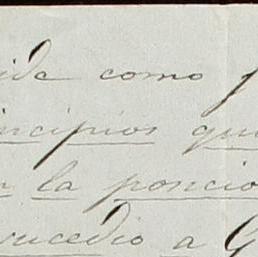 ide como f
incipios que
n la poscio
sucedio a G